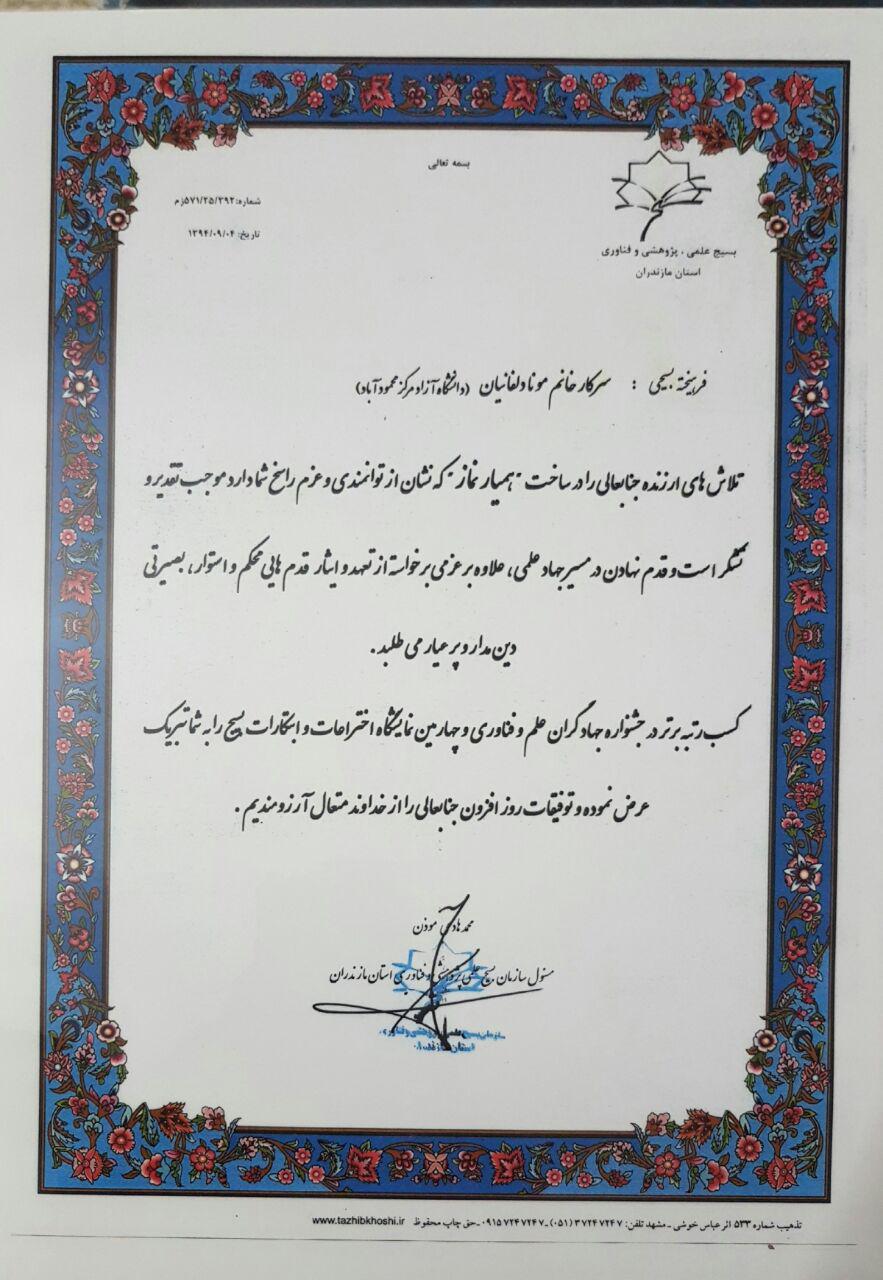 بسمه تعالی
شماره: ۵۷۱/۲۵/۳۹۲/زم
تاریخ: ۱۳۹۴/۰۹/۰۴
بسیج علمی ، پژوهشی و فناوری
استان مازندران
فرهیخته بسیجی : سرکار خانم مونا دلفانیان (دانشگاه آزاد مرکز محمودآباد)
تلاش های ارزنده جنابعالی را در ساخت "همیار نماز" که نشان از توانمندی و عزم راسخ شما دارد موجب تقدیر و
تشکر است و قدم نهادن در مسیر جهاد علمی ، علاوه بر عزمی برخواسته از تعهد و ایثار قدم هایی محکم و استوار ، بصیرتی
دین مدار و پر عیار می طلبد .
کسب رتبه برتر در جشنواره جهادگران علم و فناوری و چهارمین نمایشگاه اختراعات و ابتکارات بسیج را به شما تبریک
عرض نموده و توفیقات روز افزون جنابعالی را از خداوند متعال آرزومندیم .
محمد هادی موذن
مسئول سازمان بسیج علمی پژوهشی و فناوری استان مازندران
سازمان بسیج علمی پژوهشی و فناوری
استان مازندران
تذهیب شماره ۵۳۳ اثر عباس خوشی - مشهد تلفن: ۳۷۲۴۷۲۴۷ (۰۵۱) - ۰۹۱۵۷۲۴۷۲۴۷ - حق چاپ محفوظ www.tazhibkhoshi.ir